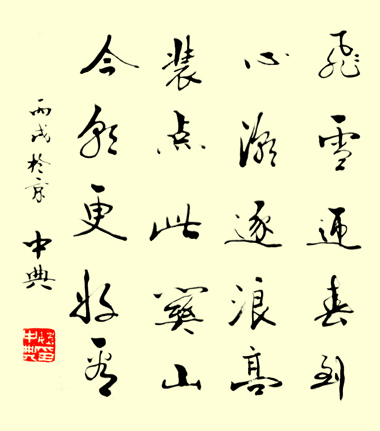 飛雪迎春到
心潮逐浪高
裝点此關山
今朝更好看
丙戌於京
中典